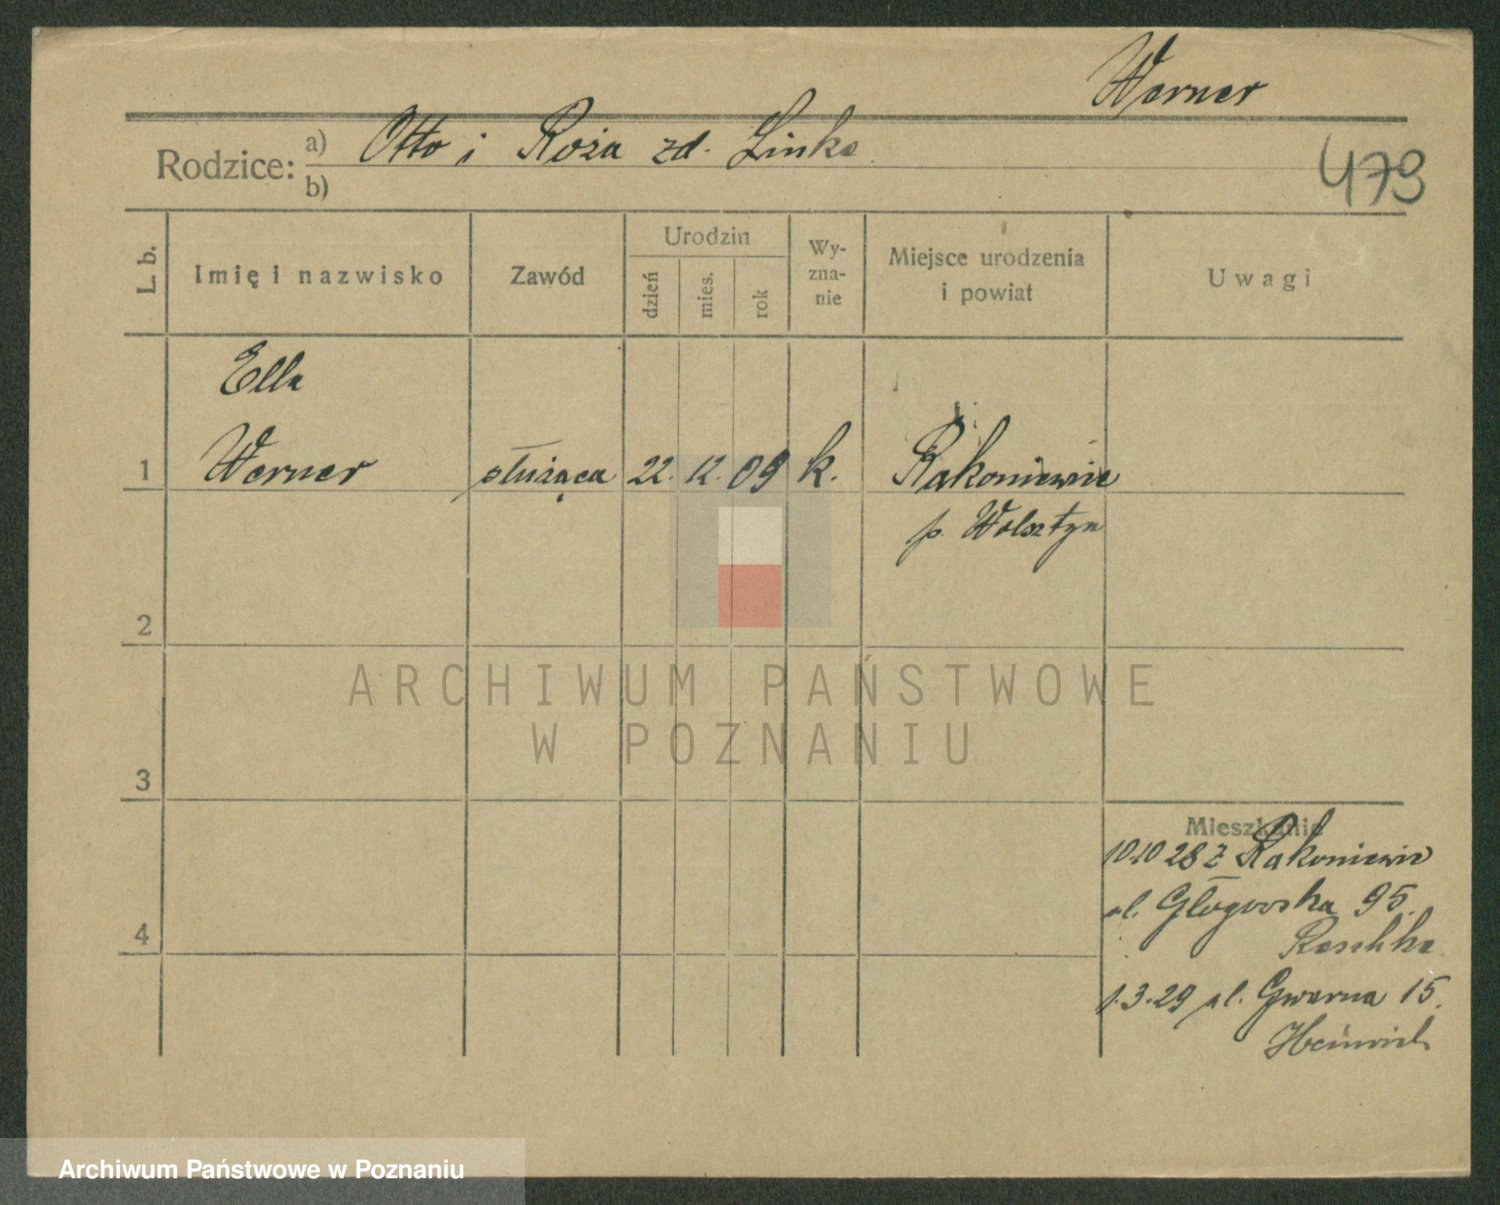 Werner
Rodzice: a) Otto i Roża zd. Linke
b)
479
L. b.
Imię i nazwisko
Zawód
Urodzin
dzień
mies.
rok
Wy-
zna-
nie
Miejsce urodzenia
i powiat
Uwagi
Ella
1 Werner służąca 22. 12. 09 k. Rakoniewice
p. Wolsztyn
2
ARCHIWUM PAŃSTWOWE
W POZNANIU
3
Mieszkanie
10.10 28 z Rakoniewic
ul. Głogowska 95.
4
Raschke
1.3.29 ul. Gwarna 15.
Heinrich
Archiwum Państwowe w Poznaniu